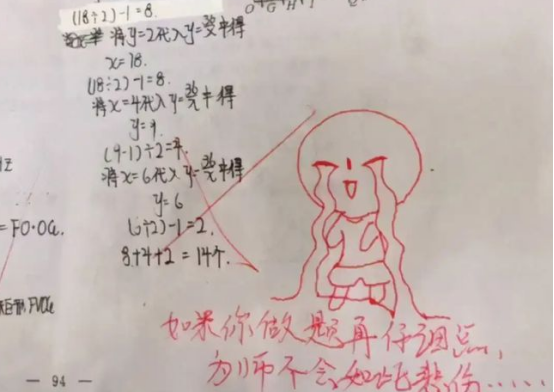 (18÷2)-1=8.
将y=2代入y=36/x中得
x=18.
(18÷2)-1=8.
将x=4代入y=36/x中得
y=9.
(9-1)÷2=4.
将x=6代入y=36/x中得
y=6
(6÷2)-1=2.
8+4+2=14个.
=FO·OG.
— 94 —
如果你做题再仔细点,
为师不会如此悲伤......